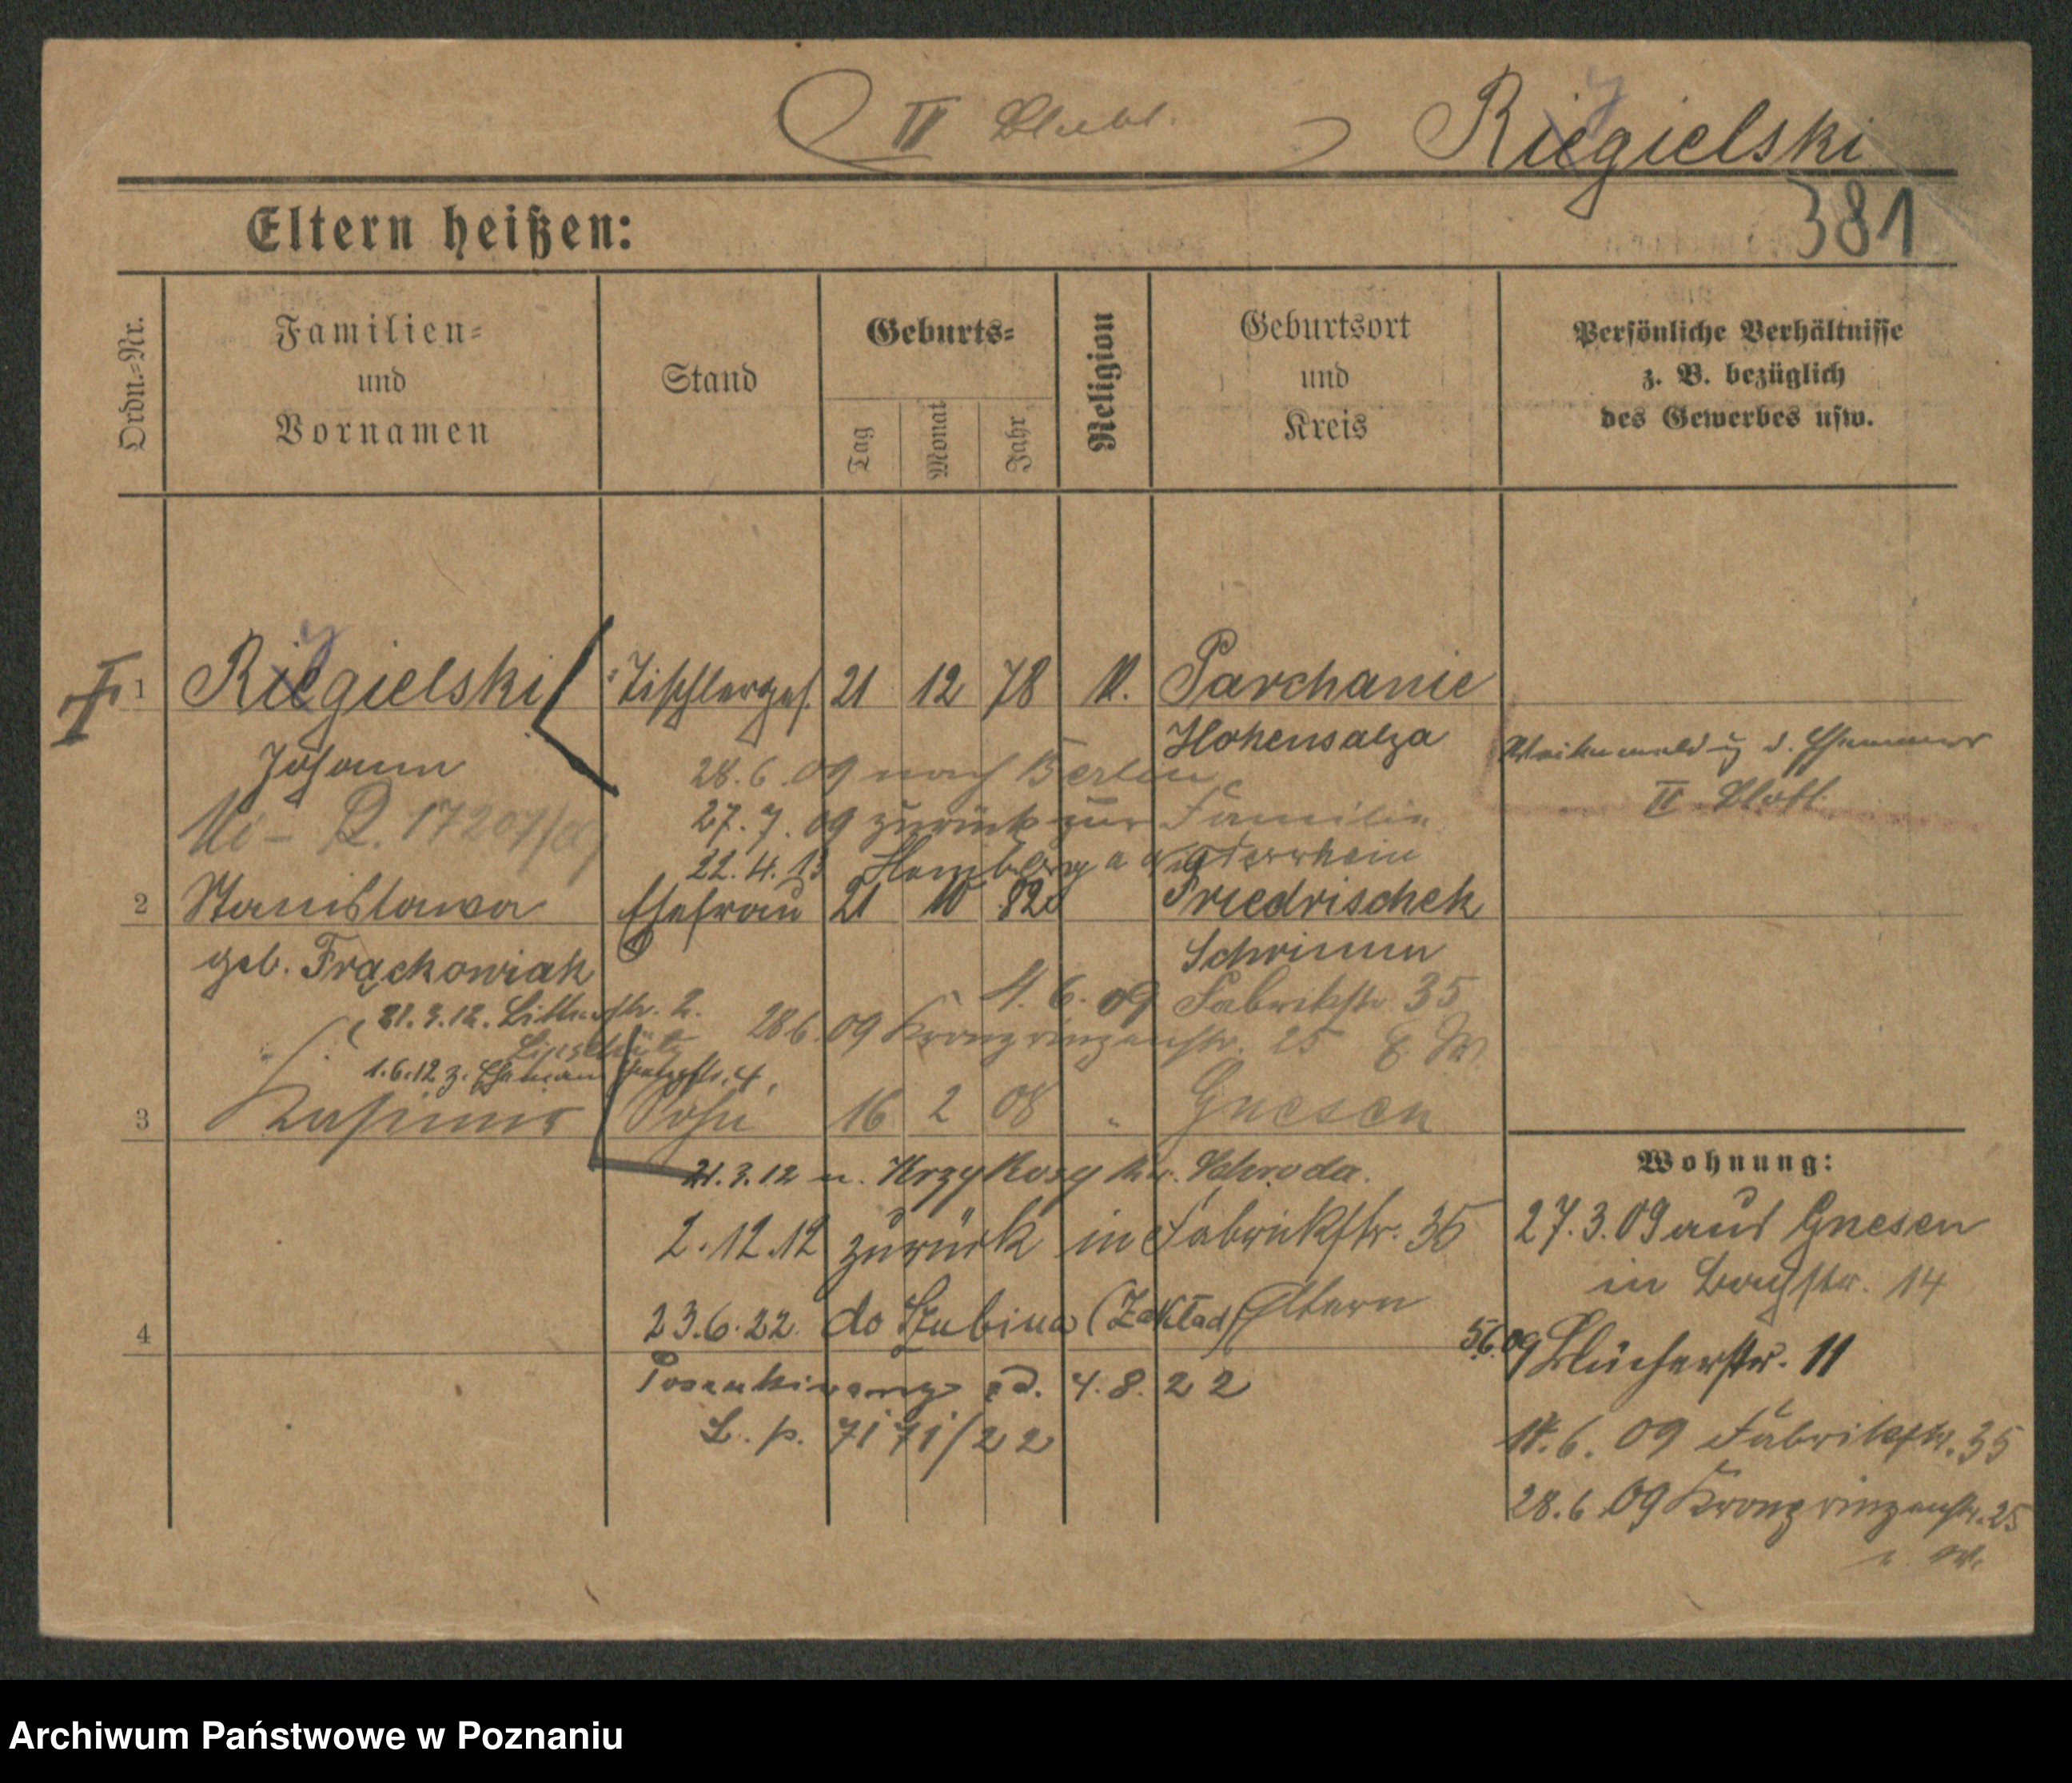 II Blatt.
Rygielski
381
Eltern heißen:
Ordn.-Nr.
Familien-
und
Vornamen
Stand
Geburts-
Tag
Monat
Jahr
Religion
Geburtsort
und
Kreis
Persönliche Verhältnisse
z. B. bezüglich
des Gewerbes usw.
I
1 Rygielski Tischlerges. 21 12 78 K. Parchanie
Hohensalza
Johann
28.6.09 nach Berlin
II Blatt.
27.7.09 zurück zur Familie
22.4.13 Homberg a Niederrhein
2 Stanislawa Ehefrau 21 10 82 Friedrischek
geb. Frąckowiak
Schrimm
4.6.09 Fabrikstr 35
21.3.12.
28.6.09 Kronprinzenstr. 25
1.6.12 z. Ehemann
3 Kasimir Sohn 16 2 08 " Gnesen
21.3.12 n. Krzykosy Kr. Schroda.
2.12.12 zurück in Fabrikstr. 35
4 23.6.22 do Szubina (Zakład) Eltern
Poszukiwany od. 4.8.22
L. p. 7171/22
Wohnung:
27.3.09 aus Gnesen
in Bachstr. 14
5.6.09 Blücherstr. 11
14.6.09 Fabrikstr. 35
28.6.09 Kronprinzenstr. 25
Archiwum Państwowe w Poznaniu